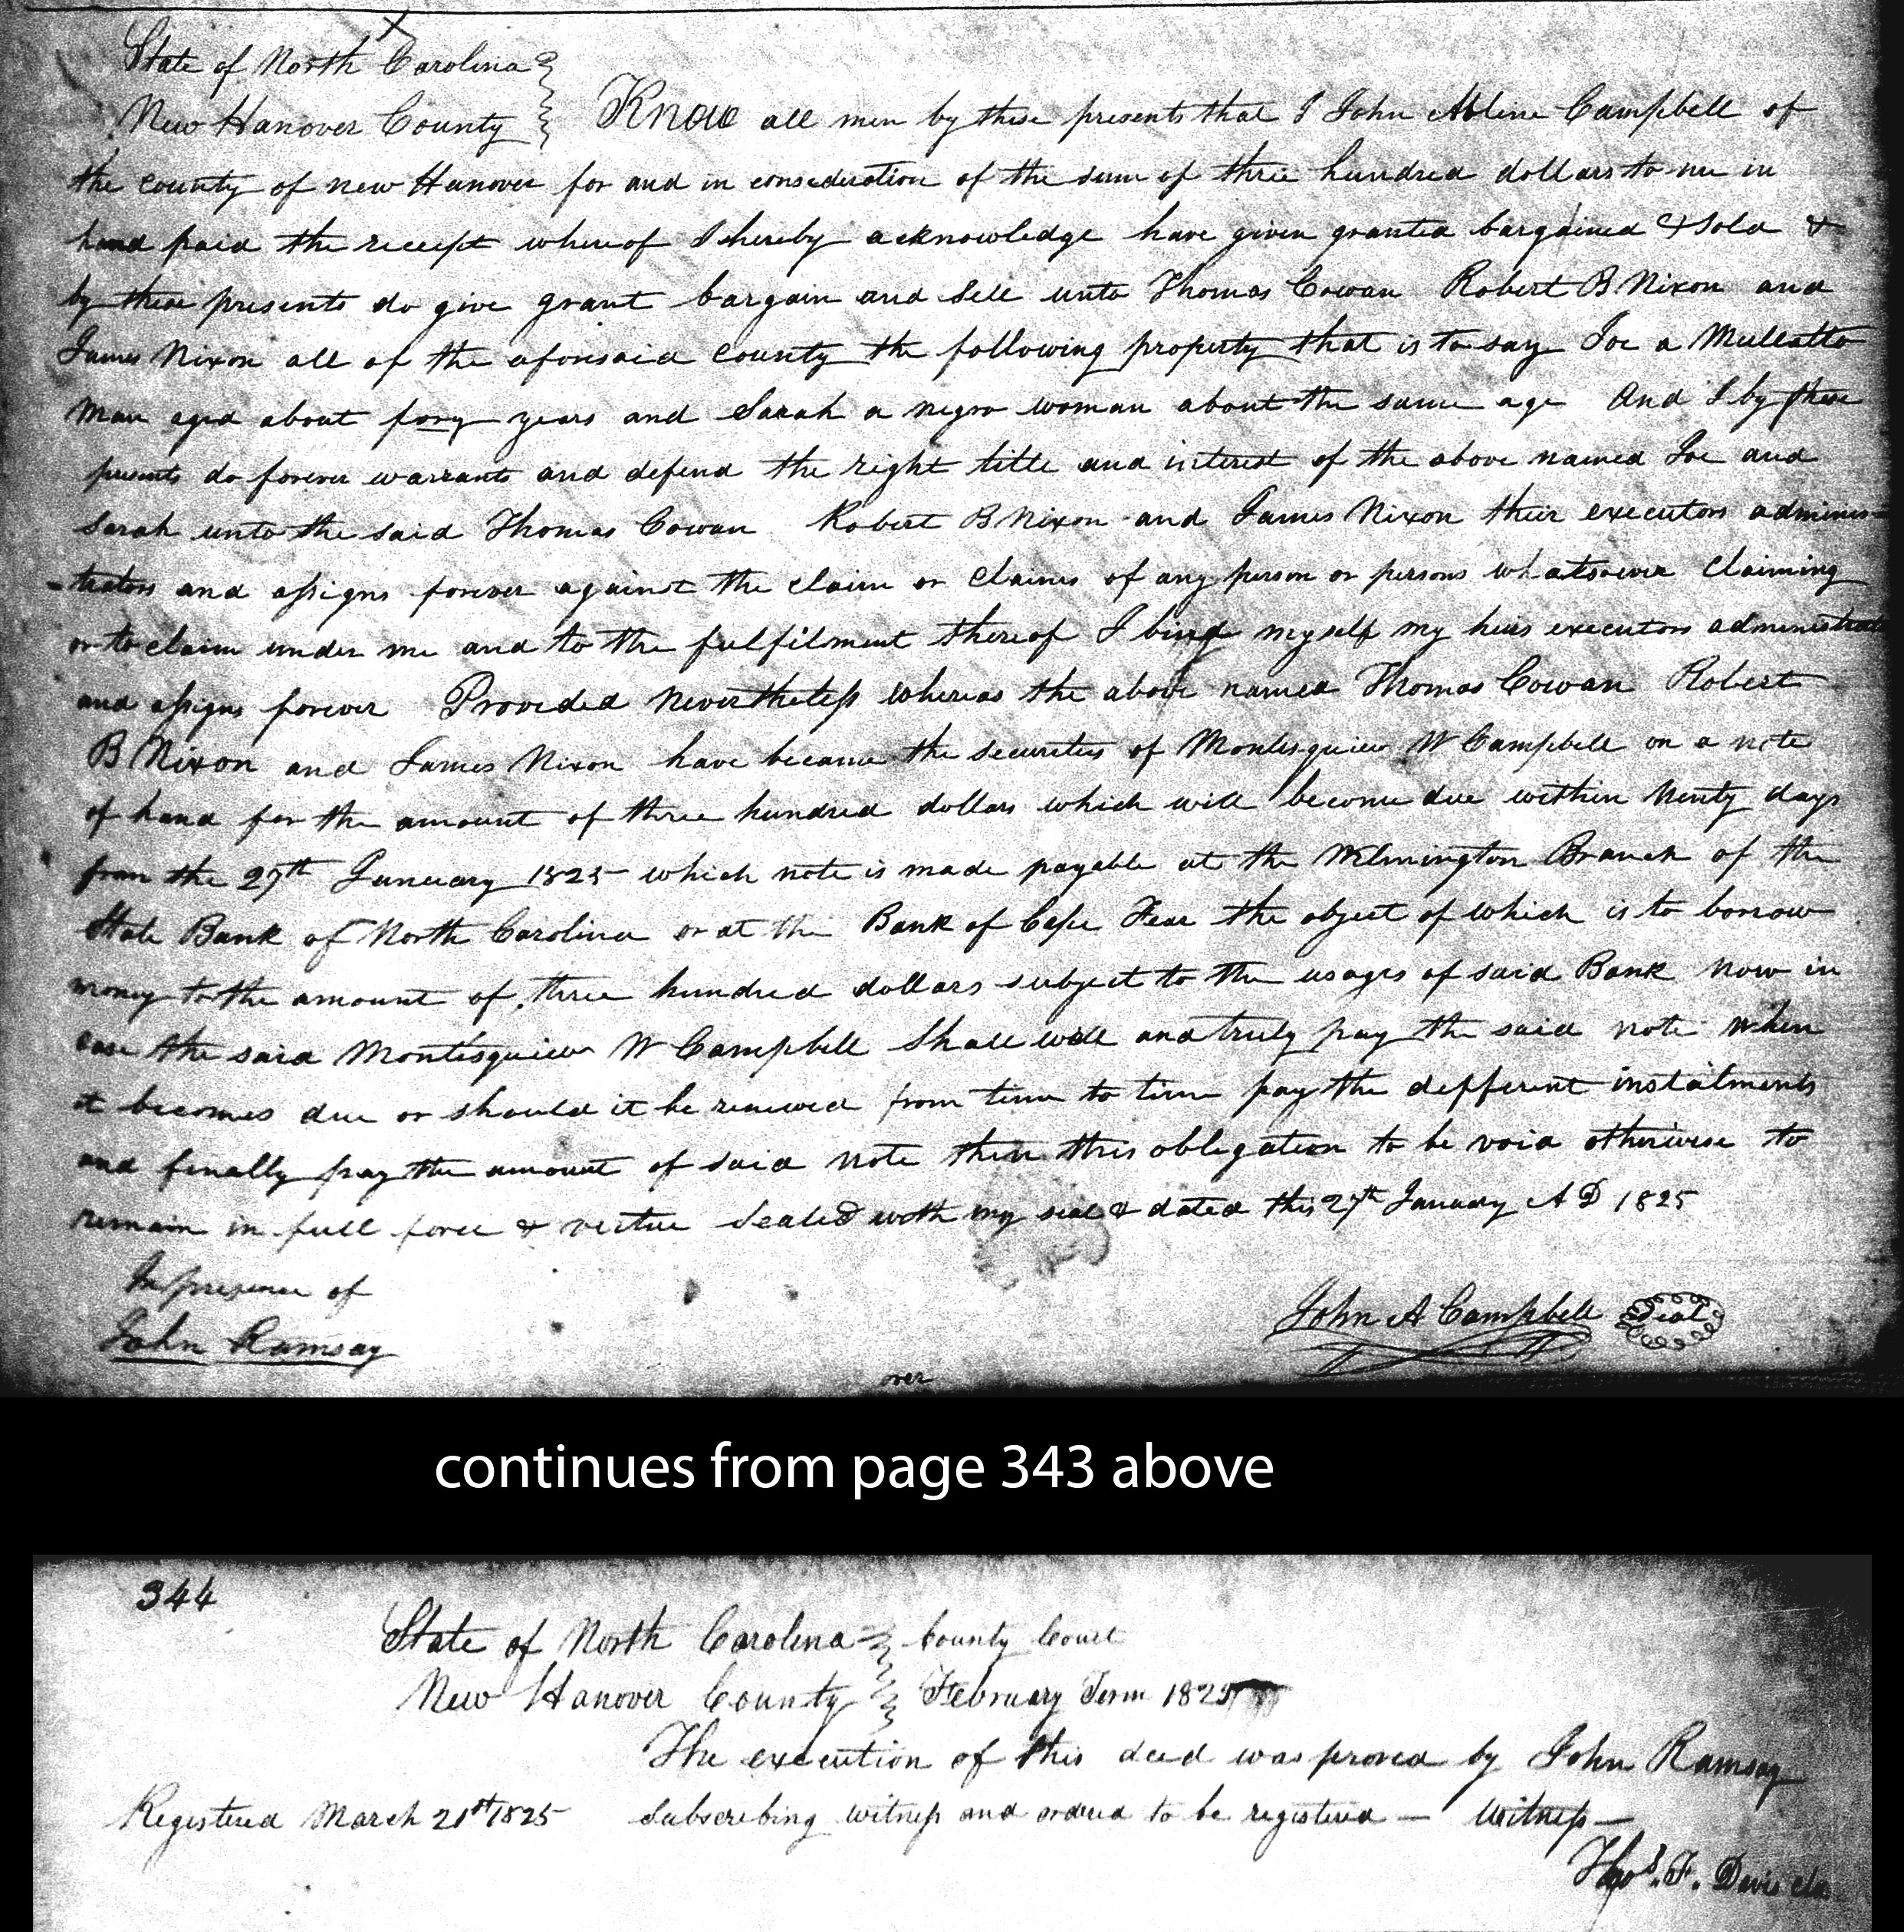 State of North Carolina
New Hanover County Know all men by these presents that I John Abline Campbell of
the county of new Hanover for and in consideration of the sum of three hundred dollars to me in
hand paid the receipt whereof I hereby acknowledge have given granted bargained & sold &
by these presents do give grant bargain and sell unto Thomas Cowan Robert B Nixon and
James Nixon all of the aforesaid county the following property that is to say Joe a Mullatto
man aged about fory years and Sarah a negro woman about the same age And I by these
presents do forever warrants and defend the right title and interest of the above named Joe and
Sarah unto the said Thomas Cowan Robert B Nixon and James Nixon their executors adminis-
-trators and assigns forever against the claim or claims of any person or persons whatsoever claiming
or to claim under me and to the fulfilment thereof I bind myself my heirs executors administrators
and assigns forever Provided Nevertheless whereas the above named Thomas Cowan Robert
B Nixon and James Nixon have became the securities of Montisquieu W Campbell on a note
of hand for the amount of three hundred dollars which will become due within Ninty days
from the 27th January 1825 which note is made payable at the Wilmington Branch of the
State Bank of North Carolina or at the Bank of Cape Fear the object of which is to borrow
money to the amount of three hundred dollars subject to the usages of said Bank Now in
case the said Montisquieu W Campbell shall well and truly pay the said note when
it becomes due or should it be renewed from time to time pay the defferent instalments
and finally pay the amount of said note then this obligation to be void otherwise to
remain in full force & virtue Sealed with my seal & dated this 27th January A D 1825
In presence of
John Ramsay
John A Campbell Seal
over
continues from page 343 above
344
State of North Carolina County Court
New Hanover County February Term 1825
The execution of this deed was proved by John Ramsay
Registered March 21st 1825 Subscribing witness and ordered to be registered — Witness —
Thos. F. Davis clk